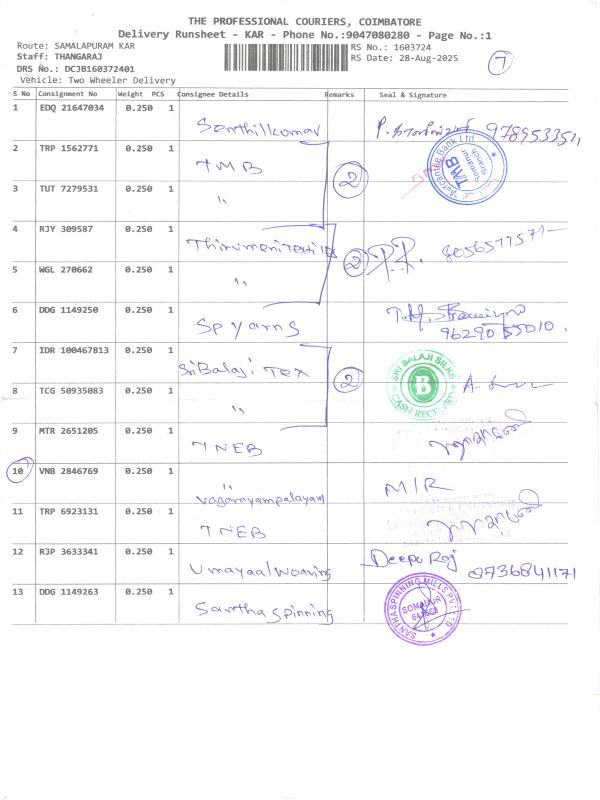 THE PROFESSIONAL COURIERS, COIMBATORE
Delivery Runsheet - KAR - Phone No.:9047080280 - Page No.:1
Route: SAMALAPURAM KAR
RS No.: 1603724
Staff: THANGARAJ
RS Date: 28-Aug-2025
7
DRS No.: DCJB160372401
Vehicle: Two Wheeler Delivery
S No Consignment No Weight PCS Consignee Details Remarks Seal & Signature
1 EDQ 21647034 0.250 1 Senthilkumar
2 TRP 1562771 0.250 1 TMB 2
TMB Somanur Branch
3 TUT 7279531 0.250 1 "
4 RJY 309587 0.250 1
5 WGL 270662 0.250 1 " 2
6 DDG 1149250 0.250 1 Sp yarns
7 IDR 100467813 0.250 1 Sri Balaji Tex 2
SRI BALAJI SILKS B
8 TCG 50935083 0.250 1 "
9 MTR 2651205 0.250 1 TNEB
10 VNB 2846769 0.250 1 " vagarayampalayam M/R
11 TRP 6923131 0.250 1 TNEB
12 RJP 3633341 0.250 1 Umayaal Weaving 8736841171
13 DDG 1149263 0.250 1 Santha Spinning
SANTHA SPINNING MILLS SOMANUR